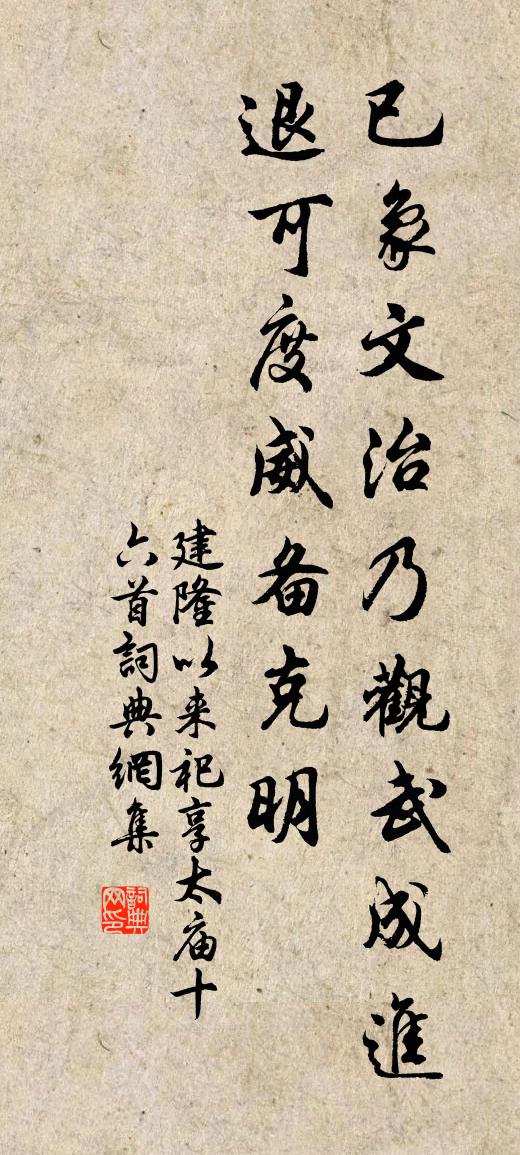 已象文治乃觀武成進
退可度威备克明
建隆以来祀享太庙十
六首詞典網集
詞典网印